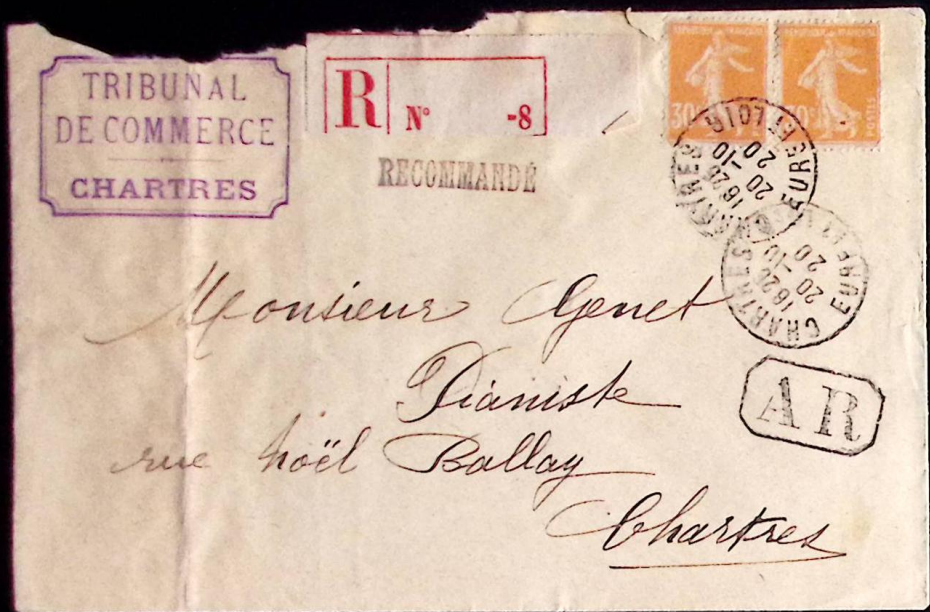 TRIBUNAL
DE COMMERCE
CHARTRES
R N° -8
RECOMMANDÉ
REPUBLIQUE FRANÇAISE
30c
REPUBLIQUE FRANÇAISE
POSTES
CHARTRES
16 25
20 -10
20
EURE ET LOIR
CHARTRES
16 25
20 -10
20
EURE ET
AR
Monsieur Genet
Pianiste
rue Noël Ballay
Chartres